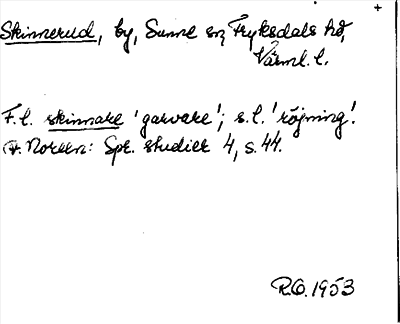 +
Skinnerud, by, Sunne sn, Fryksdals hd,
Värml. l.
F.l. skinnare 'garvare'; s.l. 'röjning'.
Noreen: Spr. studier 4, s. 44.
R.O. 1953